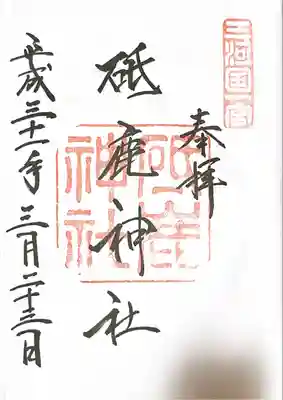 三河国一宮
奉拝
砥鹿神社
砥鹿神社
平成二十一年三月二十三日